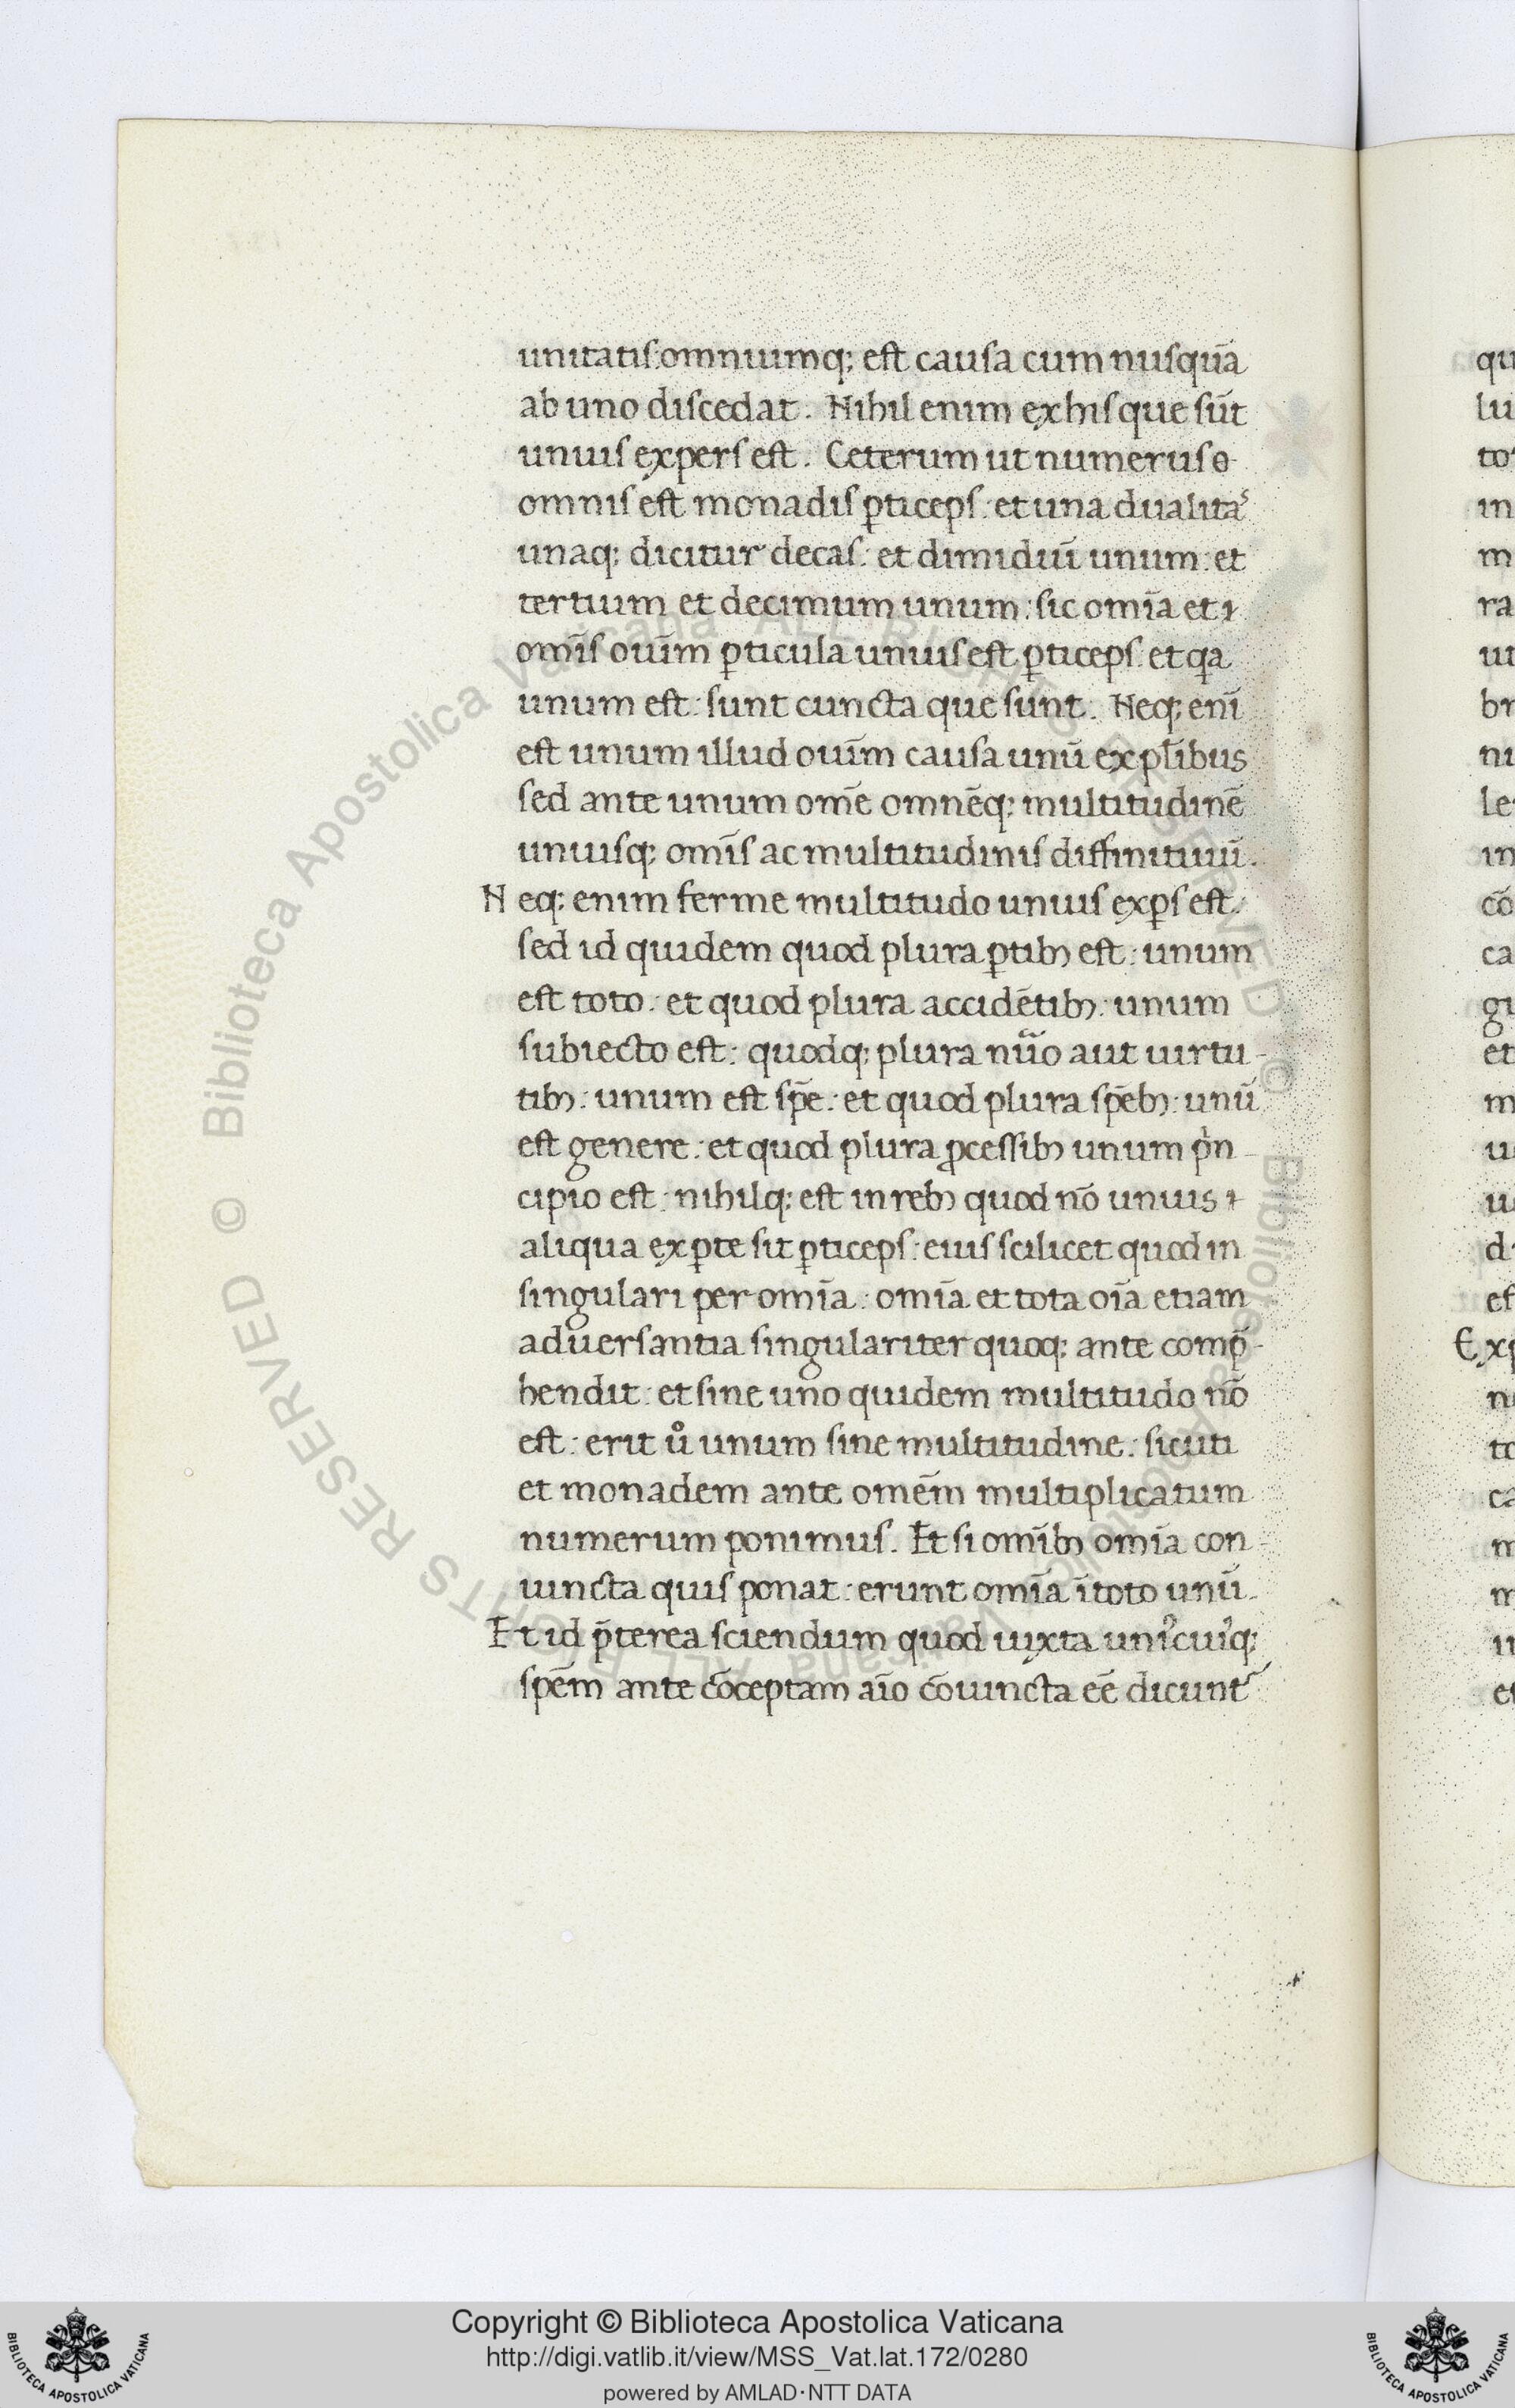 unitatis: omniumq; est causa cum nusquā
ab uno discedat. Nihil enim ex his que sūt
unius expers est. Ceterum ut numerus o
omnis est monadis ꝑticeps: et una dualitaˢ
unaq; dicitur decas: et dimidiū unum: et
tertium et decimum unum: sic omīa et ı
omīs ouīm ꝑticula unius est ꝑticeps: et qa
unum est: sunt cuncta que sunt. Neq; enī
est unum illud ouīm causa unū ex pl̄ibus
sed ante unum om̄e omnēq; multitudinē
uniusq; omīs ac multitudinis diffinitiuū.
Neq; enim ferme multitudo unius exꝑs est.
sed id quidem quod plura ꝑtibꝫ est: unum
est toto: et quod plura accidētibꝫ: unum
subiecto est: quodq; plura nūo aut uirtu-
tibꝫ: unum est spē: et quod plura spēbꝫ: unū
est genere: et quod plura ꝓcessibꝫ unum pͥn-
cipio est: nihilq; est in rebꝫ quod nō unius ı
aliqua ex ꝑte sit ꝑticeps: eius scilicet quod in
singulari per omīa: omīa et tota oīa etiam
aduersantia singulariter quoq; ante comp̄-
hendit: et sine uno quidem multitudo nō
est: erit uͦ unum sine multitudine: sicuti
et monadem ante omēm multiplicatum
numerum ponimus. Et si omībꝫ omīa con-
iuncta quis ponat: erunt omīa ī toto unū.
Et id p̄terea sciendum quod iuxta uniͥcuiͥq;
spēm ante cōceptam aīo cōiuncta eē dicunt᷑
qu
lu
to
in
m
ra
ut
br
ni
le
in
cō
ca
gi
et
m
u
u
d
ef
Exp
n
to
ca
m
m
u
et
Copyright © Biblioteca Apostolica Vaticana
http://digi.vatlib.it/view/MSS_Vat.lat.172/0280
powered by AMLAD·NTT DATA
BIBLIOTECA APOSTOLICA VATICANA
BIBLIOTECA APOSTOLICA VATICANA
© Biblioteca Apostolica Vaticana ALL RIGHTS RESERVED © Biblioteca Apostolica Vaticana ALL RIGHTS RESERVED